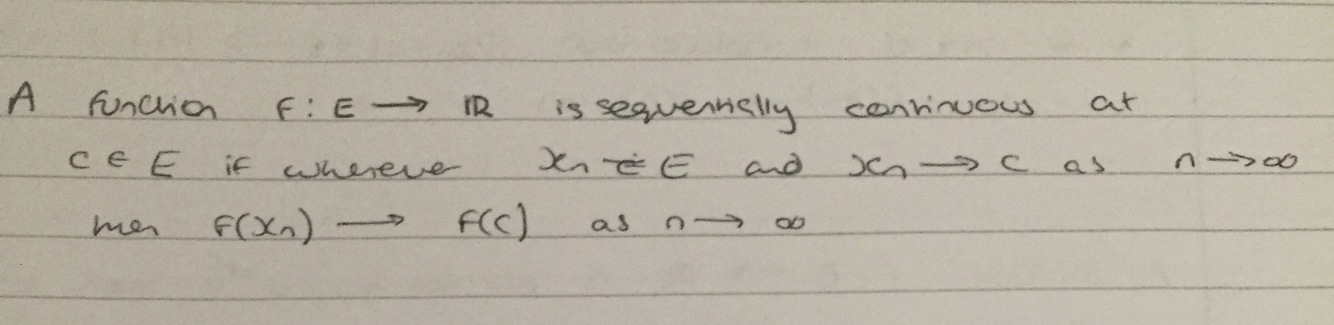 A function f: E → ℝ is sequentially continuous at
c ∈ E if whenever xn ∈ E and xn → c as n → ∞
then f(xn) → f(c) as n → ∞